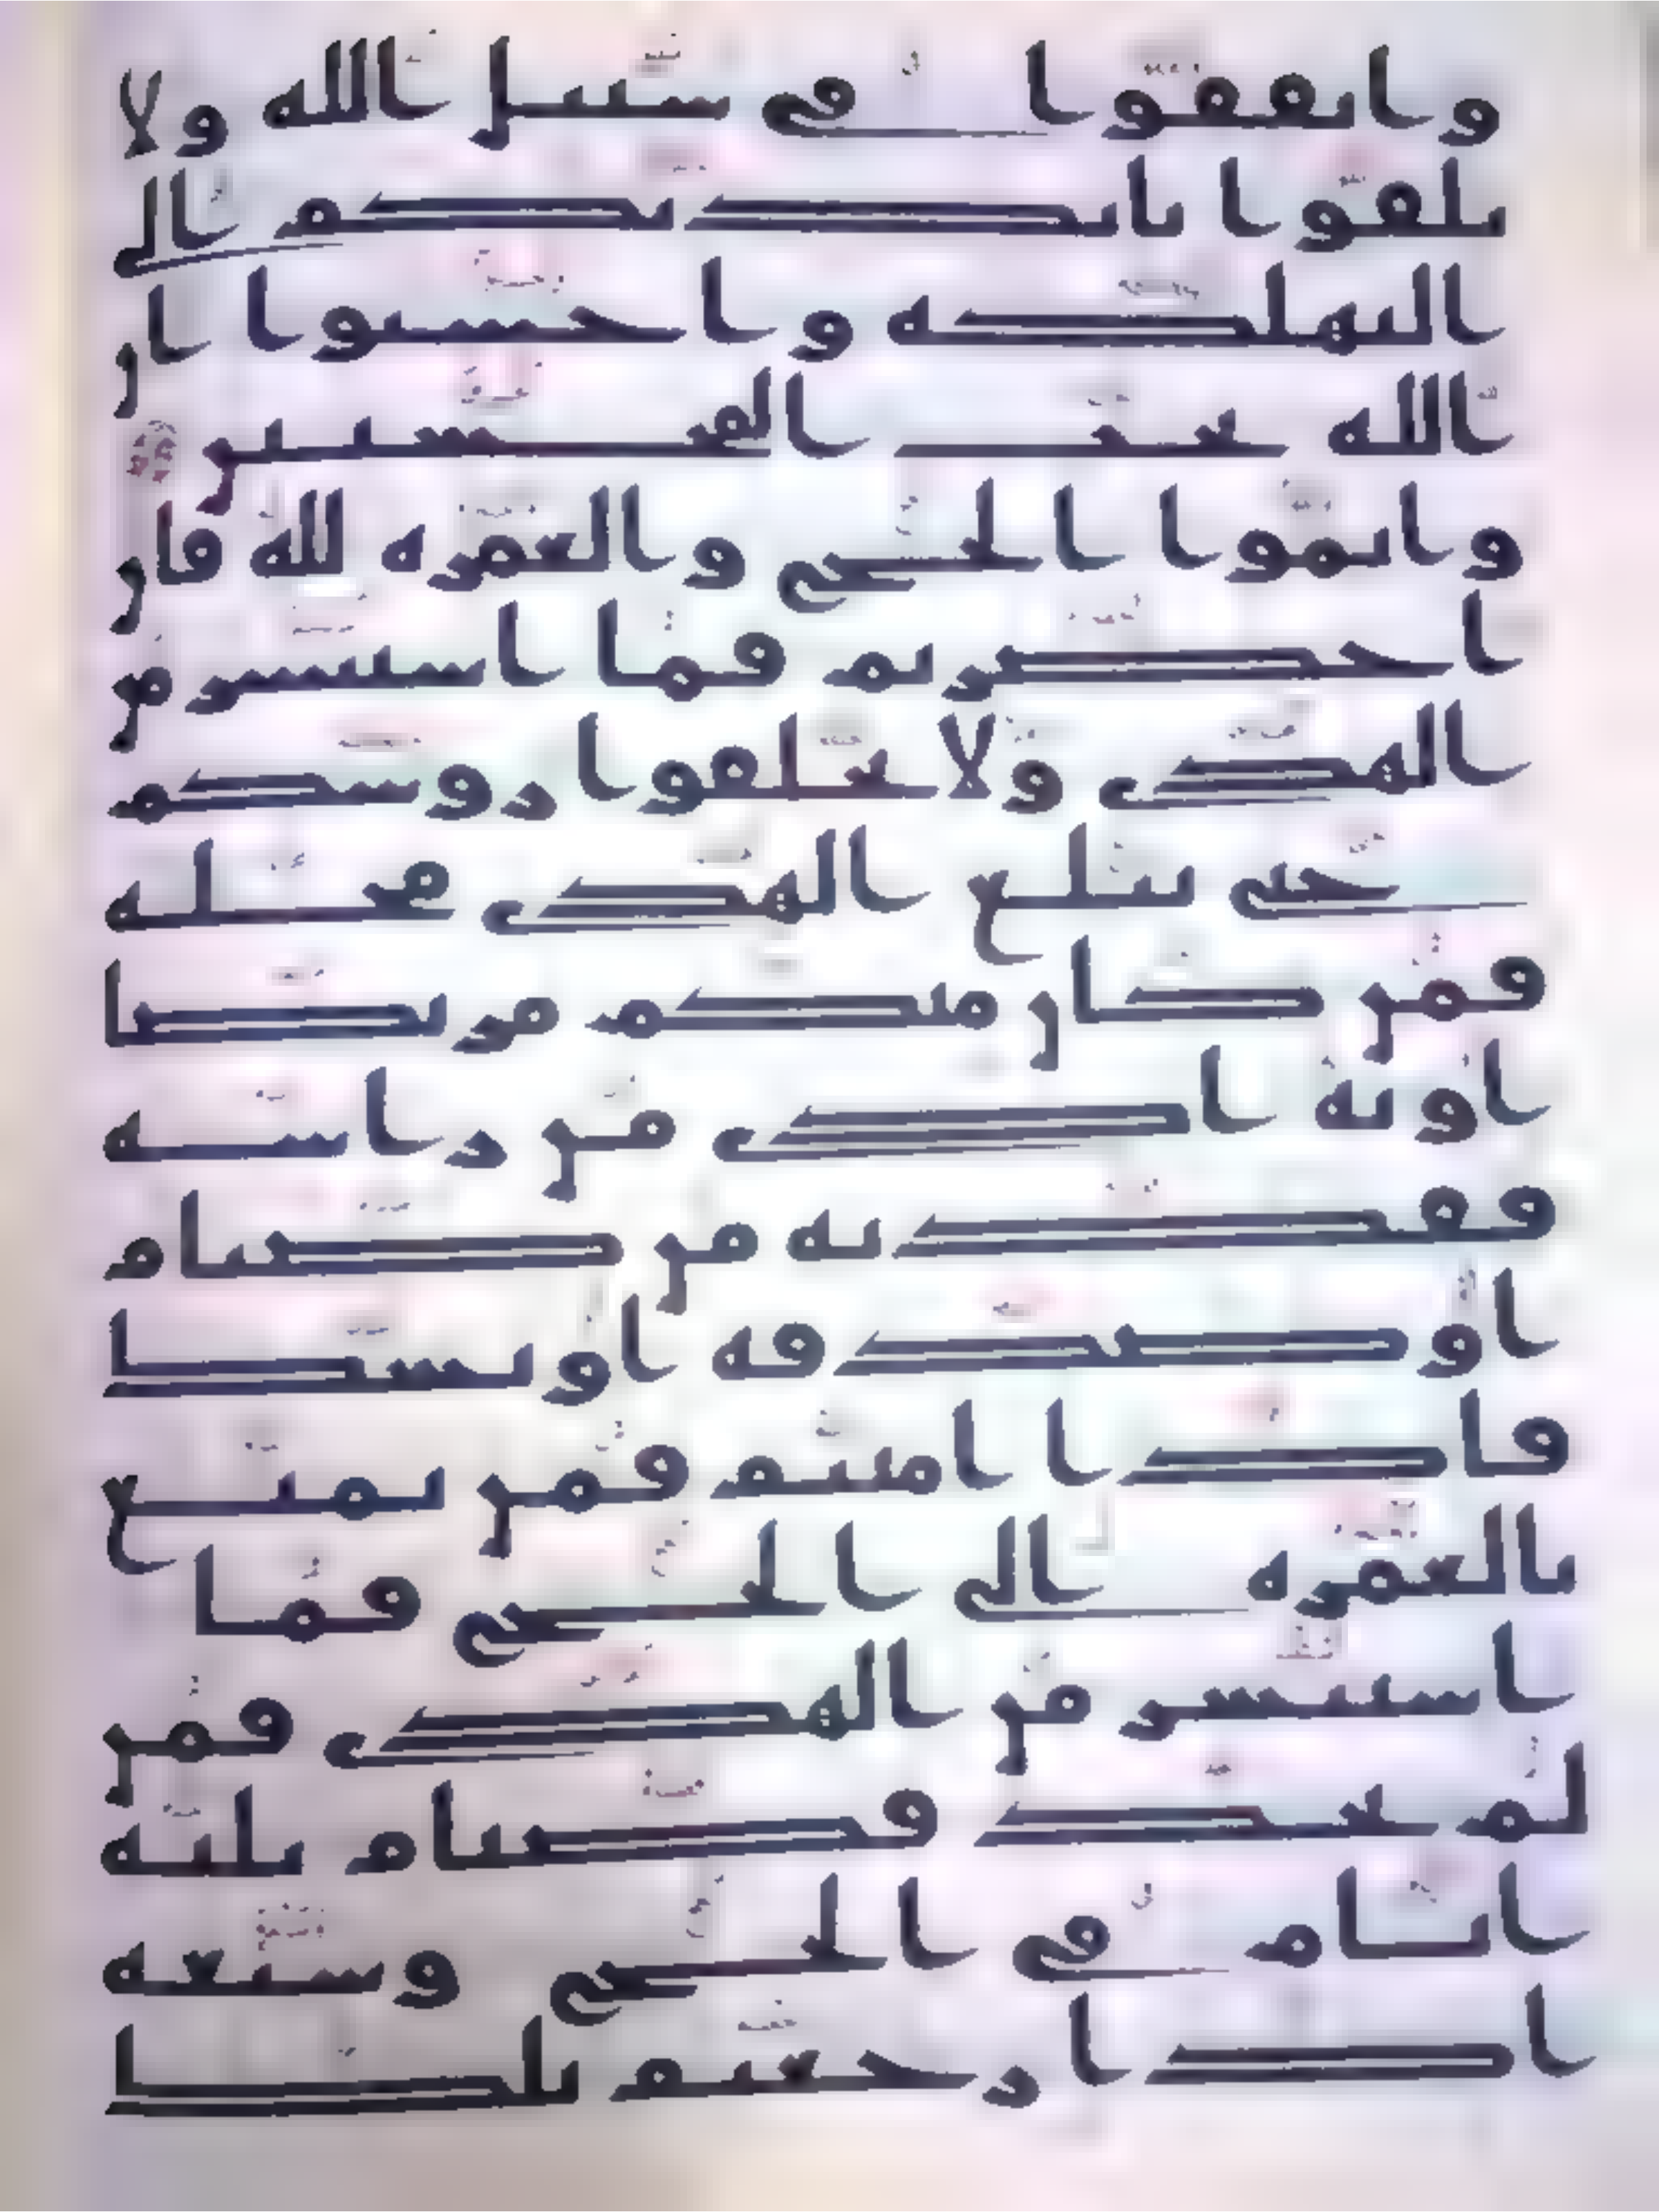 وانفقوا في سبيل الله ولا
تلقوا بايديكم الى
التهلكة واحسنوا ان
الله يحب المحسنين
واتموا الحج والعمرة لله فان
احصرتم فما استيسر من
الهدي ولا تحلقوا روسكم
حتى يبلغ الهدي محله
فمن كان منكم مريضا
او به اذى من راسه
ففدية من صيام
او صدقة او نسك
فاذا امنتم فمن تمتع
بالعمرة الى الحج فما
استيسر من الهدي فمن
لم يجد فصيام ثلثة
ايام في الحج وسبعة
اذا رجعتم تلك